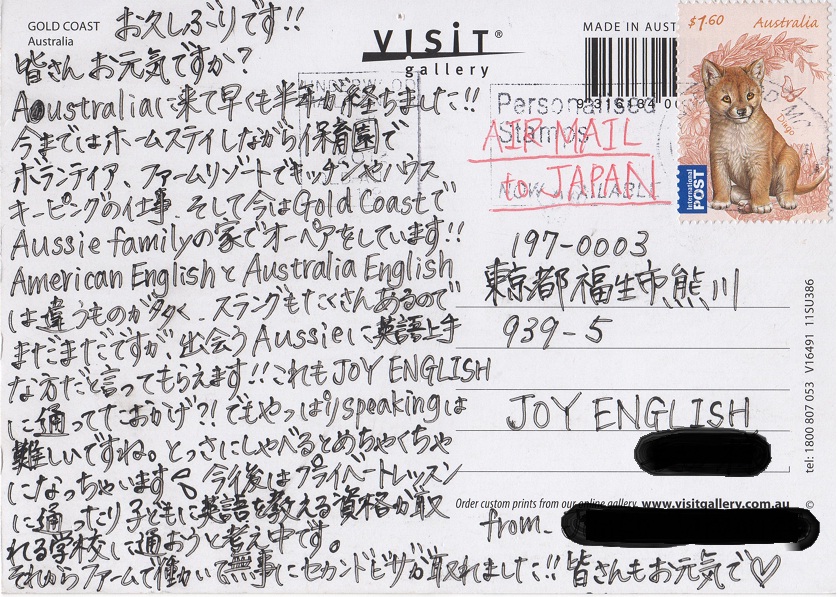 GOLD COAST
Australia
お久しぶりです!!
皆さんお元気ですか?
Australiaに来て早くも半年が経ちました!!
今まではホームステイしながら保育園で
ボランティア、ファームリゾートでキッチンやハウス
キーピングの仕事、そして今はGold Coastで
Aussie familyの家でオーペアをしています!!
American EnglishとAustralia English
は違うものが多く、スラングもたくさんあるので
まだまだですが、出会うAussieに英語上手
な方だと言ってもらえます!!これもJOY ENGLISH
に通ってたおかげ?!でもやっぱりspeakingは
難しいですね。とっさにしゃべるとめちゃくちゃ
になっちゃいます 今後はプライベートレッスン
に通ったり子どもに英語を教える資格が取
れる学校に通おうと考え中です。
それからファームで働いて無事にセカンドビザが取れました!!皆さんもお元気で♡
VISIT®
gallery
MADE IN AUST
9 316184 0
Personalised
Stamps
NOW AVAILABLE
AIR MAIL
to JAPAN
$1.60 Australia
Dingo
International
POST
197-0003
東京都福生市熊川
939-5
JOY ENGLISH
Order custom prints from our online gallery www.visitgallery.com.au
from.
tel: 1800 807 053 V16491 11SU386
©